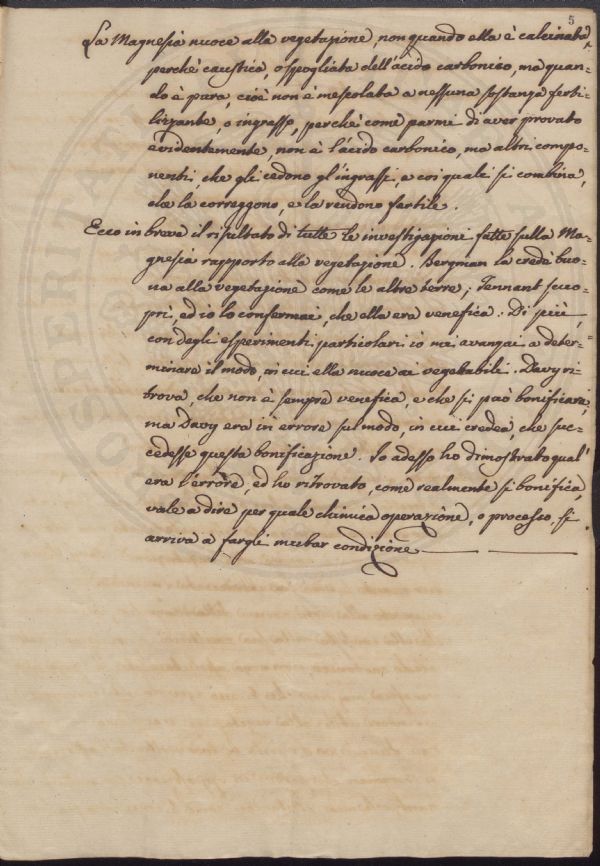 5
La Magnesia nuoce alla vegetazione, non quando ella è calcinata,
perchè caustica, o spogliata dell'ácido carbonico, ma quan=
do è pura, cioè non è mescolata a nessuna sostanza ferti=
lizzante, o ingrasso, perchè come parmi di aver provato
evidentemente, non è l'ácido carbonico, ma altri compo=
nenti, che gli cedono gl'ingrassi, e coi quali si combina,
che la correggono, e la rendono fertile.
Ecco in breve il risultato di tutte le investigazioni fatte sulla Ma=
gnesia rapporto alla vegetazione. Bergman la crede buo=
na alla vegetazione come le altre terre; Tennant sco=
prì, ed io lo confermai, che ella era venefica. Di più,
con degli esperimenti particolari io mi avanzai a deter=
minare il modo, in cui ella nuoce ai vegetabili. Davy ri=
trova, che non è sempre venefica, e che si può bonificare,
ma Davy era in errore sul modo, in cui credea, che suc=
cedesse questa bonificazione. Io adesso ho dimostrato qual'
era l'errore, ed ho ritrovato, come realmente si bonifica,
vale a dire per quale chimica operazione, o processo si
arriva a fargli mutar condizione